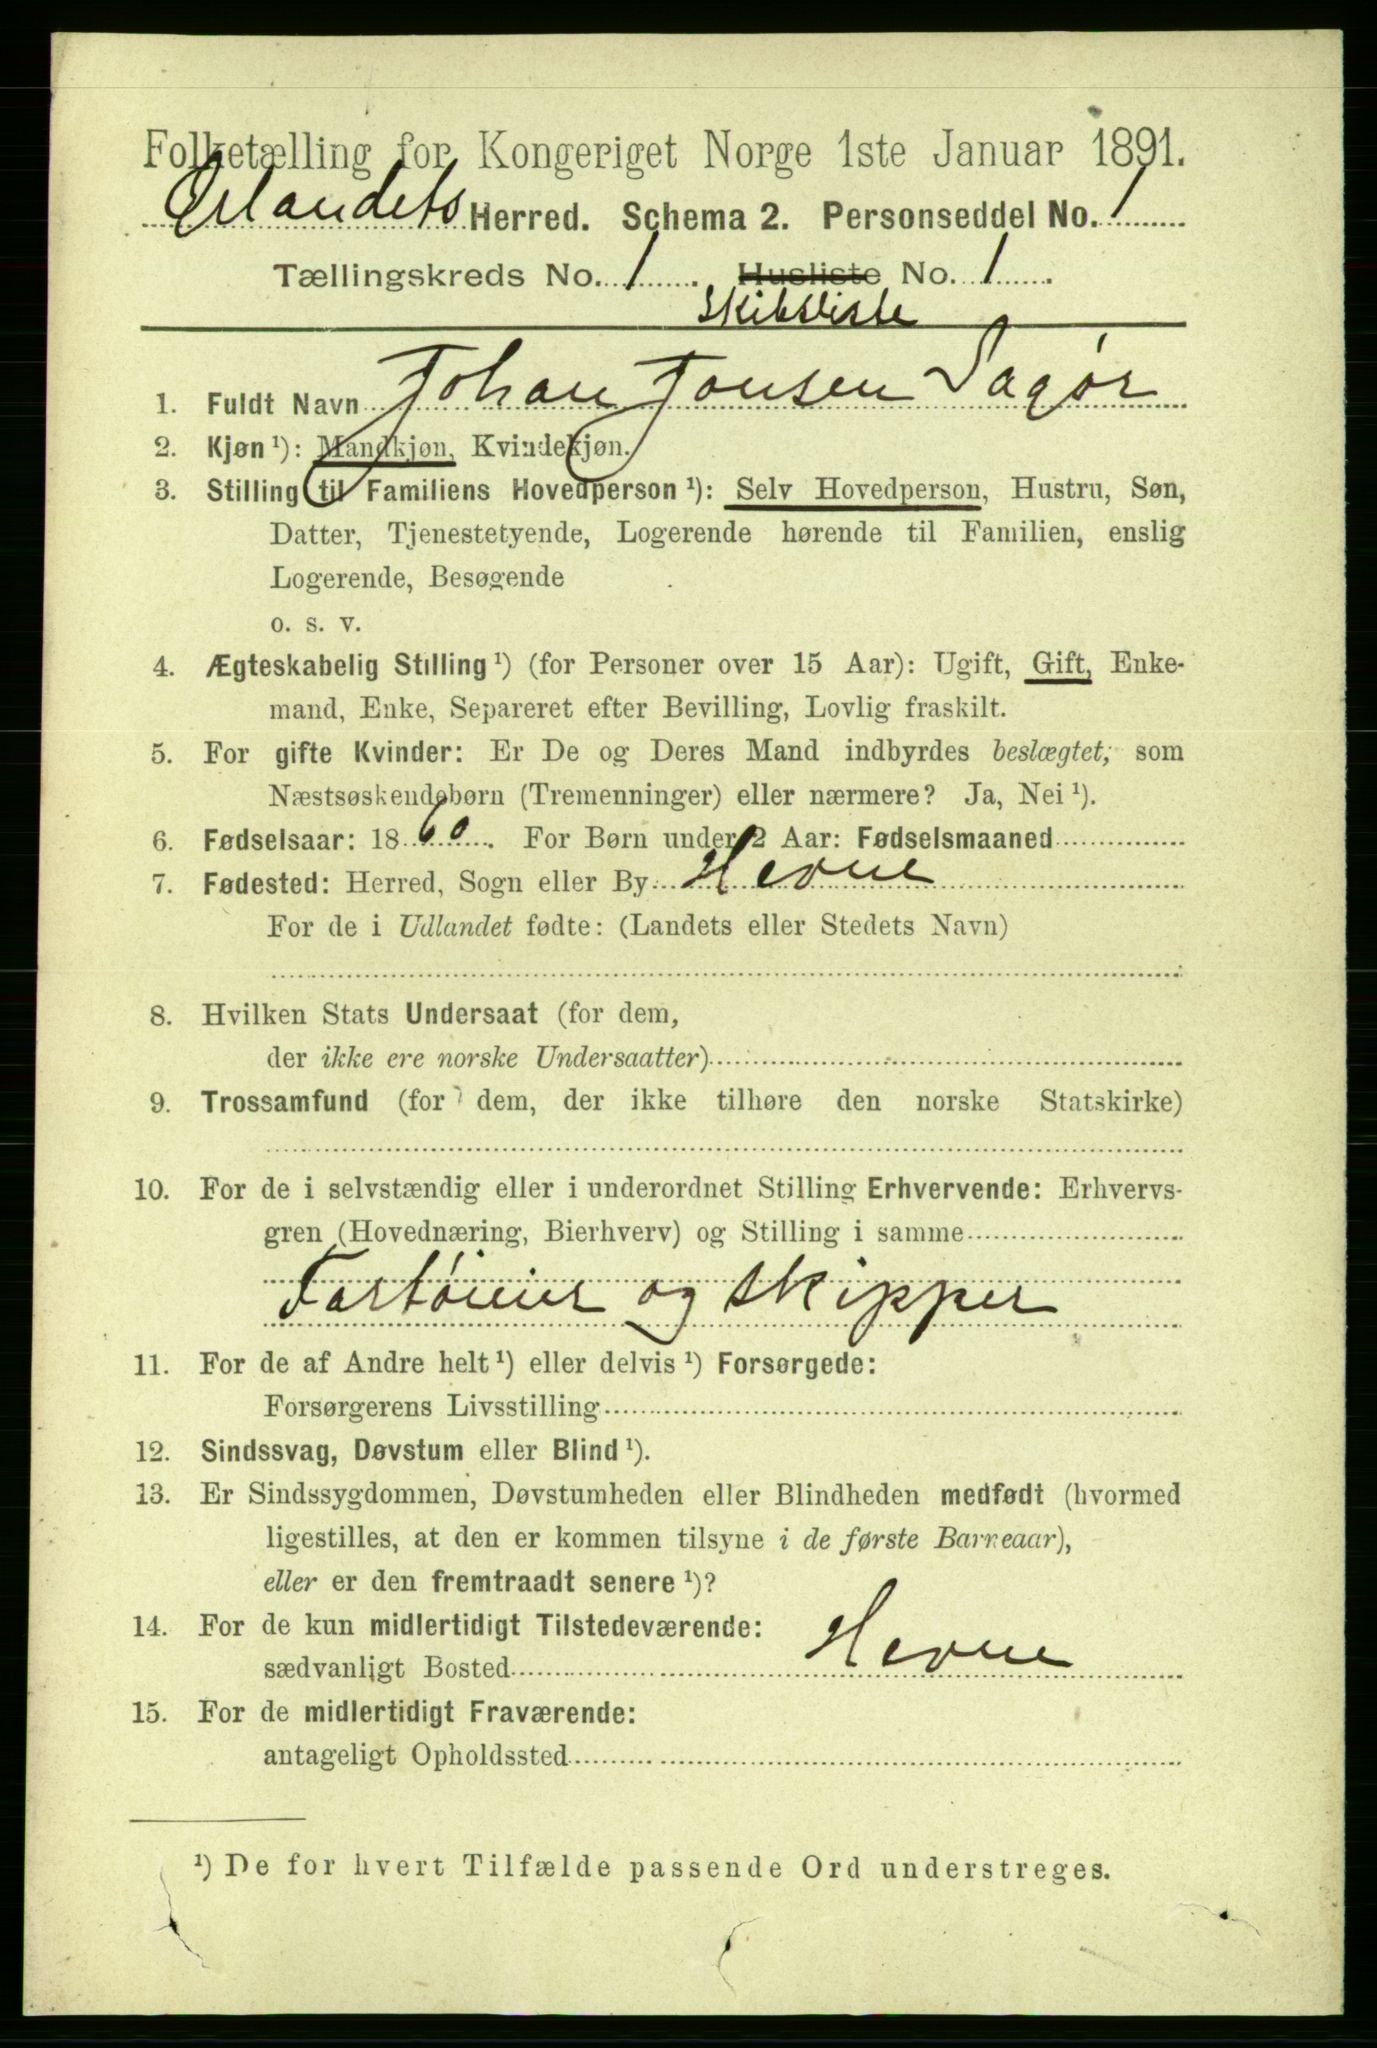 Folketælling for Kongeriget Norge 1ste Januar 1891.
Ørlandets Herred. Schema 2. Personseddel No. 1
Tællingskreds No. 1. Husliste No. 1.
Skibsliste
1. Fuldt Navn Johan Jonsen Sagør
2. Kjøn ¹): Mandkjøn, Kvindekjøn.
3. Stilling til Familiens Hovedperson ¹): Selv Hovedperson, Hustru, Søn,
Datter, Tjenestetyende, Logerende hørende til Familien, enslig
Logerende, Besøgende
o. s. v.
4. Ægteskabelig Stilling ¹) (for Personer over 15 Aar): Ugift, Gift, Enke-
mand, Enke, Separeret efter Bevilling, Lovlig fraskilt.
5. For gifte Kvinder: Er De og Deres Mand indbyrdes beslægtet, som
Næstsøskendebørn (Tremenninger) eller nærmere? Ja, Nei ¹).
6. Fødselsaar: 1860. For Børn under 2 Aar: Fødselsmaaned
7. Fødested: Herred, Sogn eller By Hevne
For de i Udlandet fødte: (Landets eller Stedets Navn)
8. Hvilken Stats Undersaat (for dem,
der ikke ere norske Undersaatter)
9. Trossamfund (for dem, der ikke tilhøre den norske Statskirke)
10. For de i selvstændig eller i underordnet Stilling Erhvervende: Erhvervs-
gren (Hovednæring, Bierhverv) og Stilling i samme
Fartøieier og Skipper
11. For de af Andre helt ¹) eller delvis ¹) Forsørgede:
Forsørgerens Livsstilling
12. Sindssvag, Døvstum eller Blind ¹).
13. Er Sindssygdommen, Døvstumheden eller Blindheden medfødt (hvormed
ligestilles, at den er kommen tilsyne i de første Barneaar),
eller er den fremtraadt senere ¹)?
14. For de kun midlertidigt Tilstedeværende:
sædvanligt Bosted Hevne
15. For de midlertidigt Fraværende:
antageligt Opholdssted
¹) De for hvert Tilfælde passende Ord understreges.